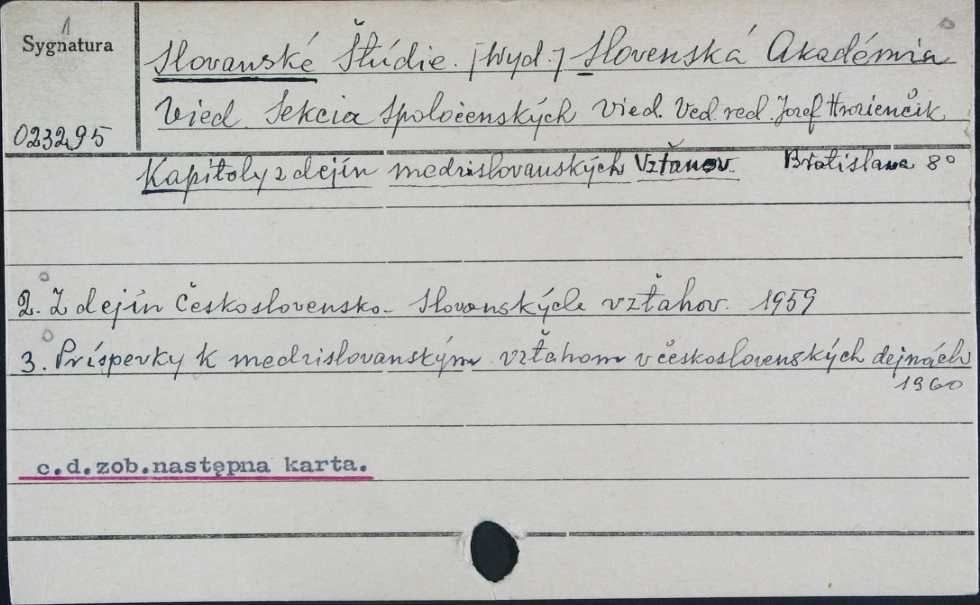 1
Sygnatura
Slovanské Študie. [Wyd.] Slovenská Akadémia
023295
Vied. Sekcia Spoločenských Vied. Ved. red. Jozef Hrozienčik
Kapitoly z dejín medzislovanských Vzťahov. Bratislava 8°
2. Z dejín Československo-Slovanských vzťahov. 1959
3. Príspevky k medzislovanským vzťahom v československých dejnách
1960
c.d.zob.następna karta.